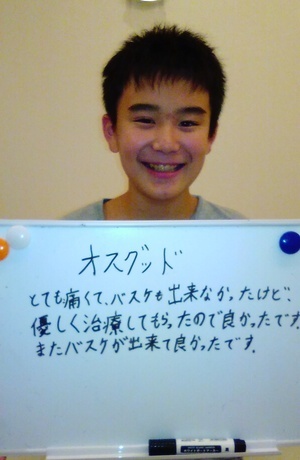 オスグッド
とても痛くて、バスケも出来なかったけど、
優しく治療してもらったので良かったです
またバスケが出来て良かったです。